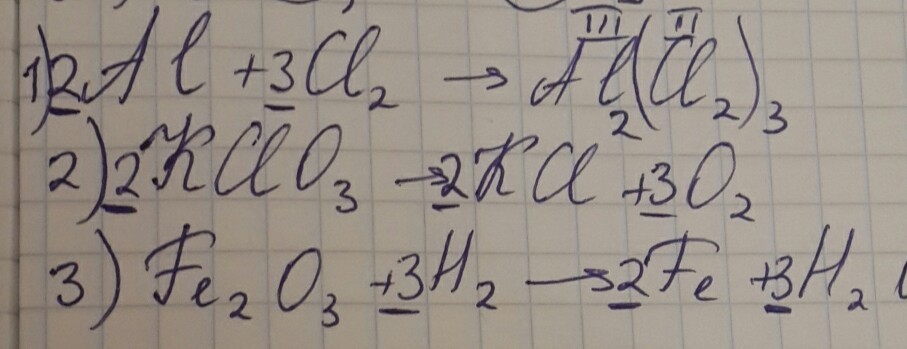 1) 2Al + 3Cl₂ → Al₂(Cl₂)₃ III II
2) 2KClO₃ → 2KCl + 3O₂
3) Fe₂O₃ + 3H₂ → 2Fe + 3H₂